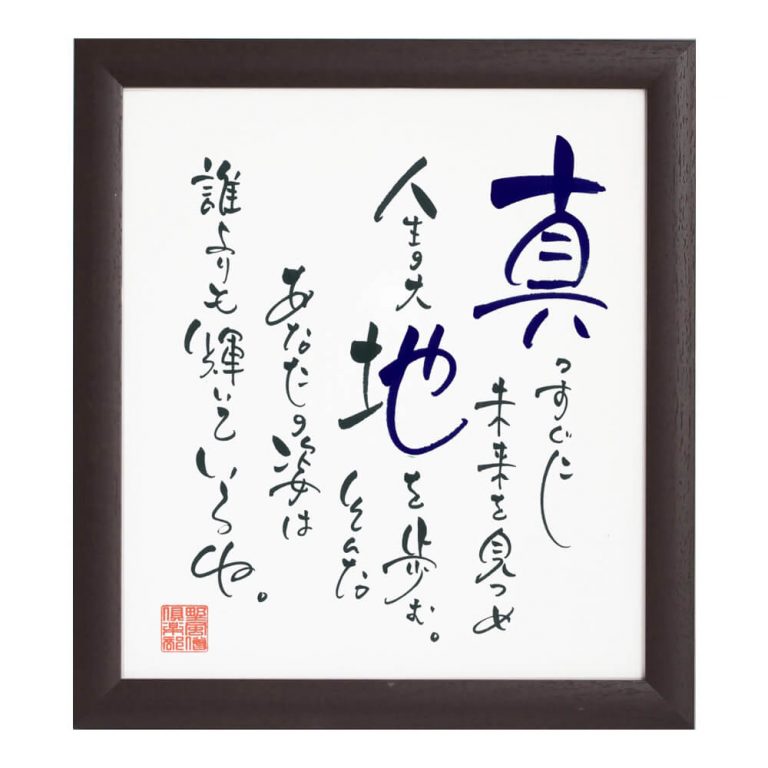 真っすぐに
未来を見つめ
人生の大地を歩む。
そんな
あなたの姿は
誰よりも輝いているね。